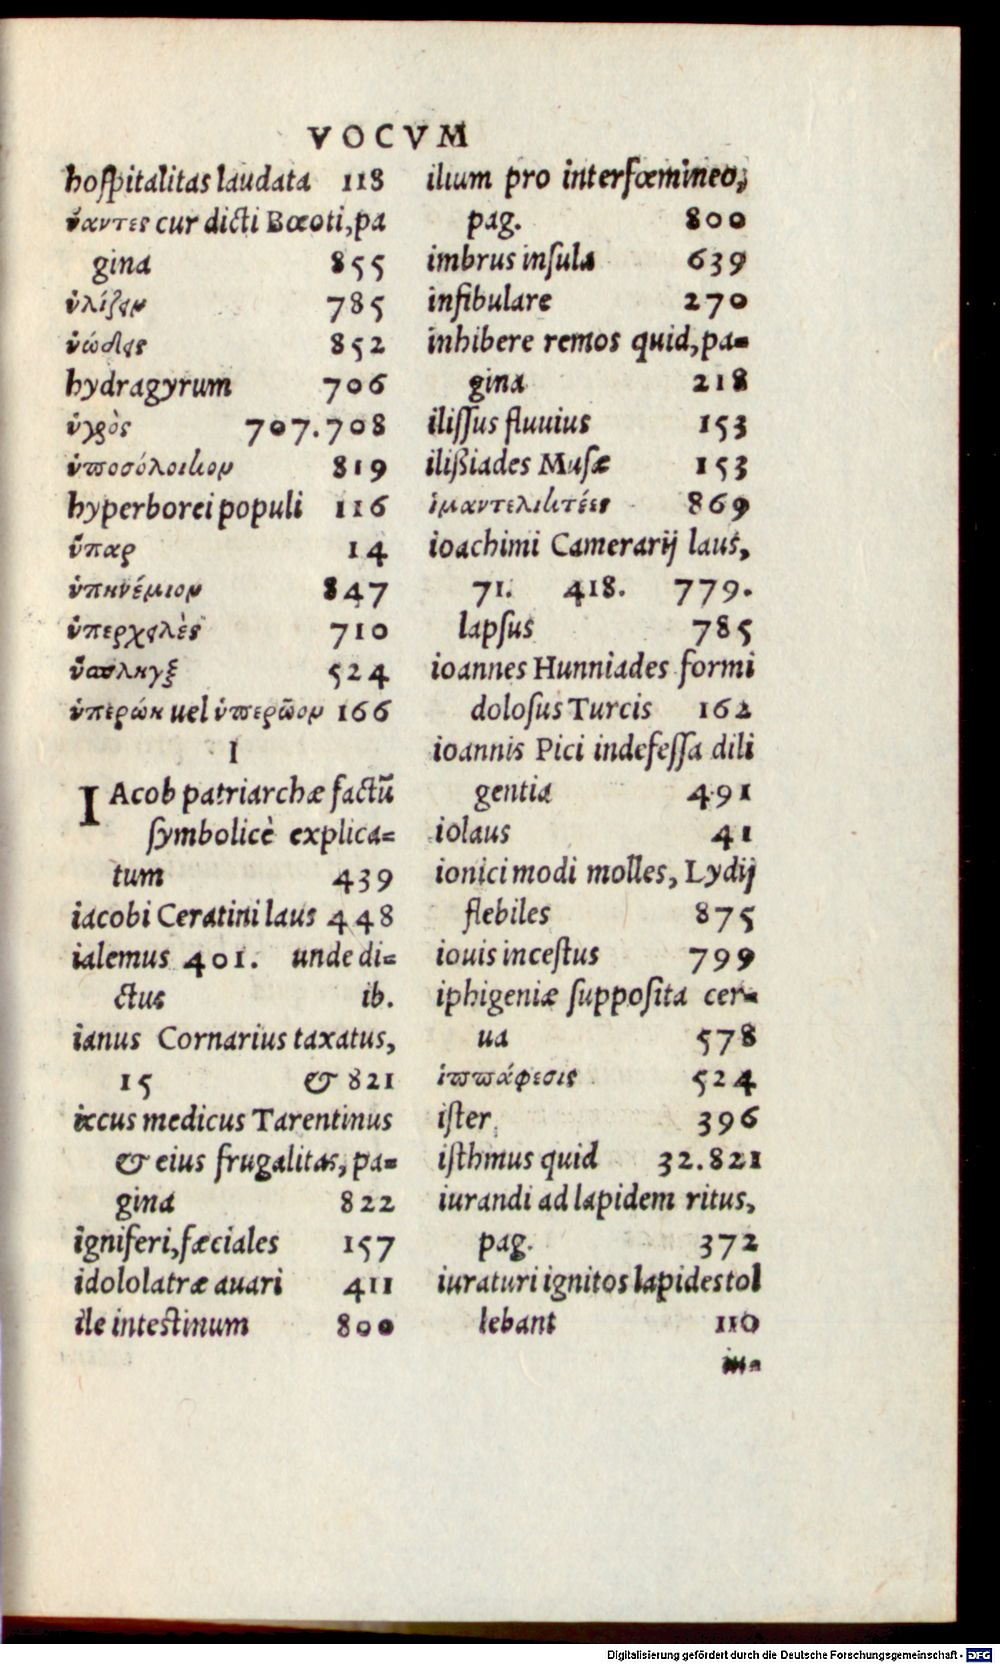 VOCVM
hoſpitalitas laudata 118
ὕαντες cur dicti Bœoti, pa
gina 855
ὑλίζαμ 785
852
hydragyrum 706
ὑγρὸς 707.708
ὑποσόλοικομ 819
hyperborei populi 116
ὕπαρ 14
ὑπηνέμιομ 847
710
ὕσπληγξ 524
ὑπερώη uel ὑπερῶομ 166
I
IAcob patriarchæ factũ
ſymbolicè explica=
tum 439
iacobi Ceratini laus 448
ialemus 401. unde di=
ctus ib.
ianus Cornarius taxatus,
15 & 821
iccus medicus Tarentinus
& eius frugalitas, pa=
gina 822
igniferi, fæciales 157
idololatræ auari 411
ile intestinum 800
ilium pro interfœmineo,
pag. 800
imbrus inſula 639
infibulare 270
inhibere remos quid, pa=
gina 218
iliſſus fluuius 153
ilißiades Muſæ 153
ἱμαντελικτέες 869
ioachimi Camerarij laus,
71. 418. 779.
lapſus 785
ioannes Hunniades formi
doloſus Turcis 162
ioannis Pici indefeſſa dili
gentia 491
iolaus 41
ionici modi molles, Lydij
flebiles 875
iouis inceſtus 799
iphigeniæ ſuppoſita cer=
ua 578
ἱππάφεσις 524
iſter 396
iſthmus quid 32.821
iurandi ad lapidem ritus,
pag. 372
iuraturi ignitos lapides tol
lebant 110
Digitalisierung gefördert durch die Deutsche Forschungsgemeinschaft - DFG